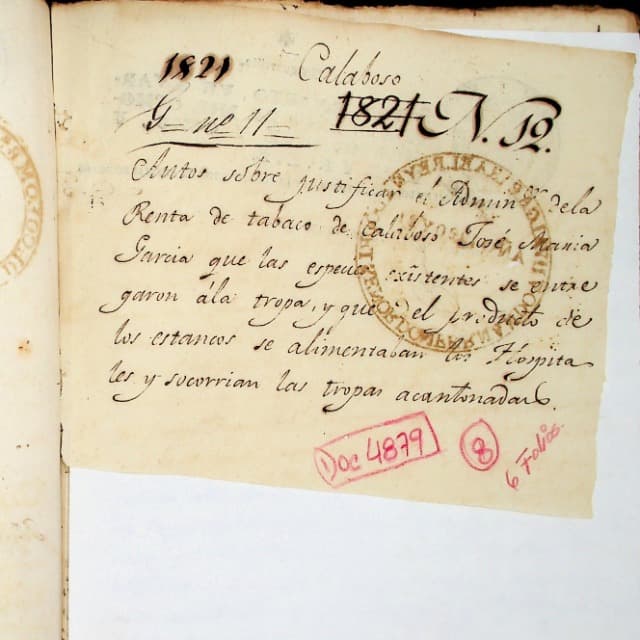 1821 Calaboso
G= nº 11= 1821 N. 12.
Autos sôbre justificar el Admin.ᵒʳ dela
Renta de tabaco de Calaboso José Maria
Garcia que las especies existentes se entre
garon ála tropa, y que del producto de
los estancos se alimentaban los Hospita
les y socorrian las tropas acantonadas.
Doc 4879 8
6 Folios.